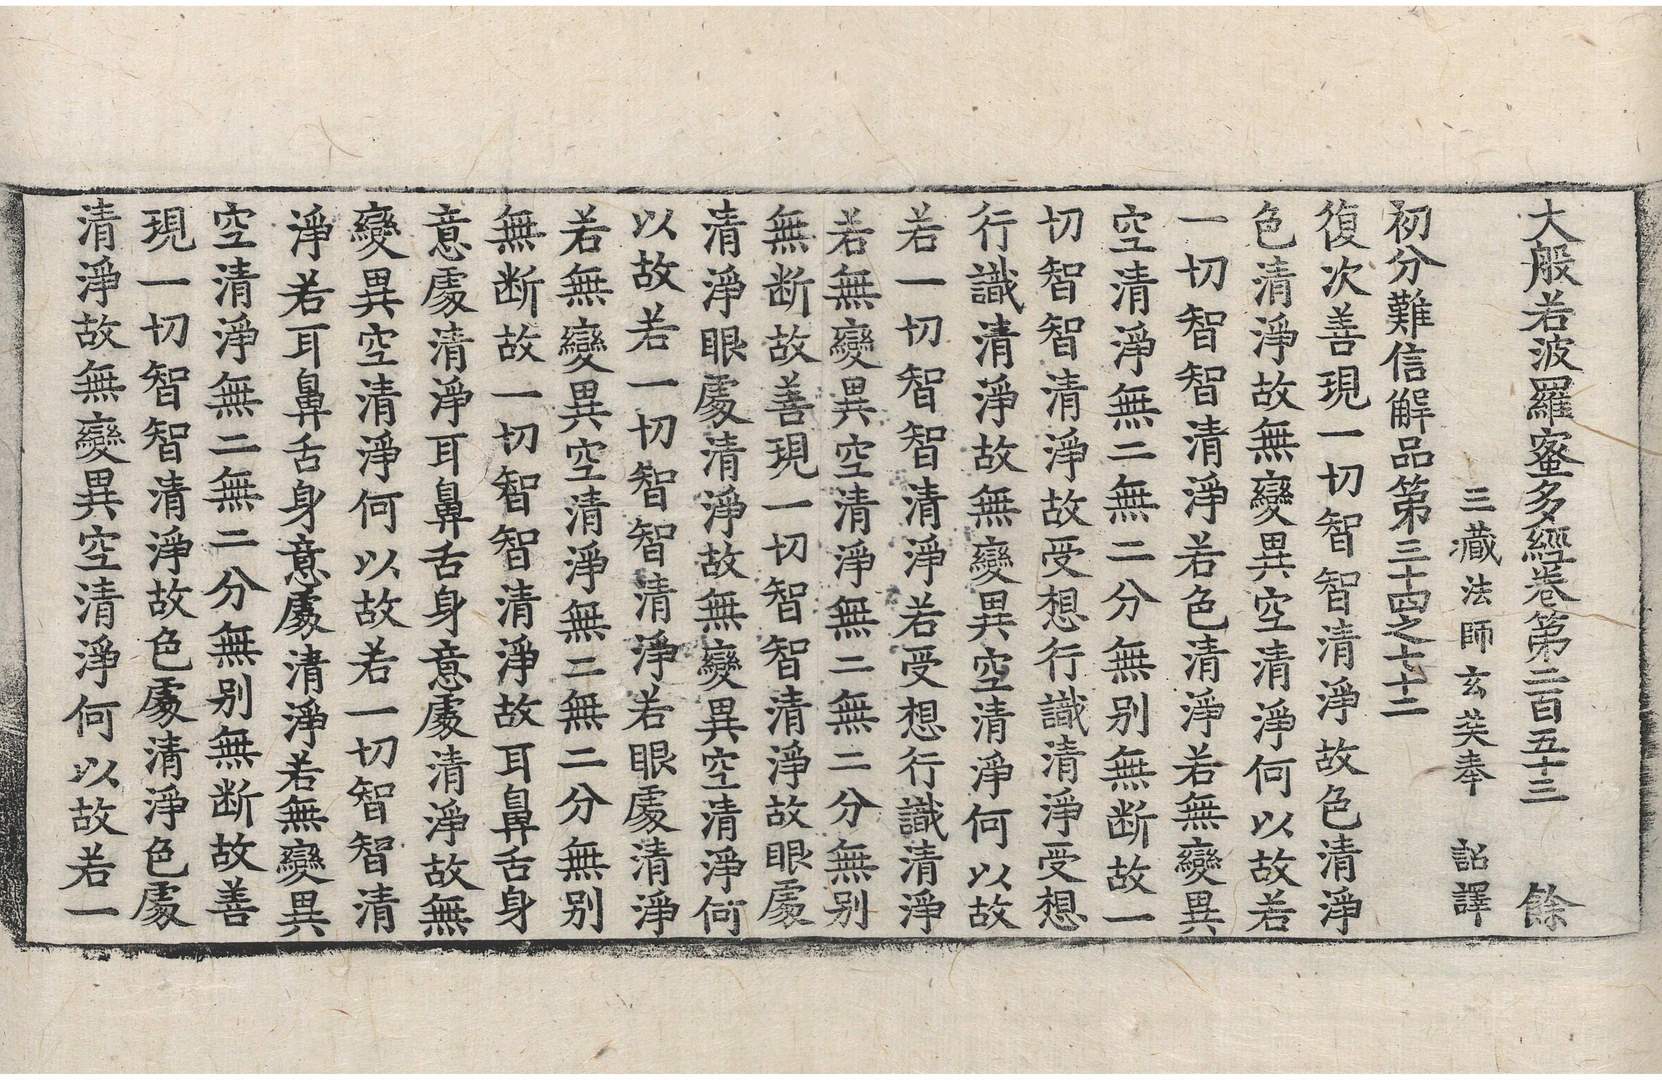 大般若波羅蜜多經卷第二百五十三 餘
三藏法師玄奘奉 詔譯
初分難信解品第三十四之七十二
復次善現一切智智清淨故色清淨
色清淨故無變異空清淨何以故若
一切智智清淨若色清淨若無變異
空清淨無二無二分無別無断故一
切智智清淨故受想行識清淨受想
行識清淨故無變異空清淨何以故
若一切智智清淨若受想行識清淨
若無變異空清淨無二無二分無別
無断故善現一切智智清淨故眼處
清淨眼處清淨故無變異空清淨何
以故若一切智智清淨若眼處清淨
若無變異空清淨無二無二分無別
無断故一切智智清淨故耳鼻舌身
意處清淨耳鼻舌身意處清淨故無
變異空清淨何以故若一切智智清
淨若耳鼻舌身意處清淨若無變異
空清淨無二無二分無別無断故善
現一切智智清淨故色處清淨色處
清淨故無變異空清淨何以故若一